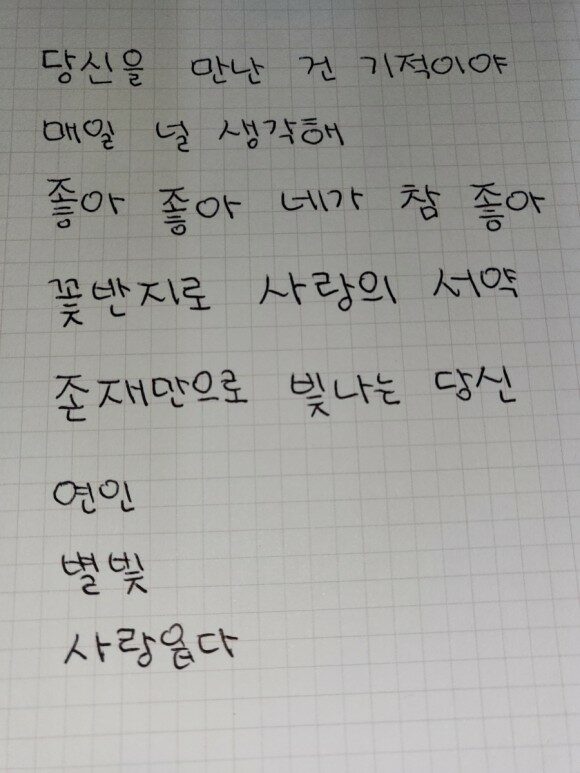 당신을 만난 건 기적이야
매일 널 생각해
좋아 좋아 네가 참 좋아
꽃반지로 사랑의 서약
존재만으로 빛나는 당신
연인
별빛
사랑옵다